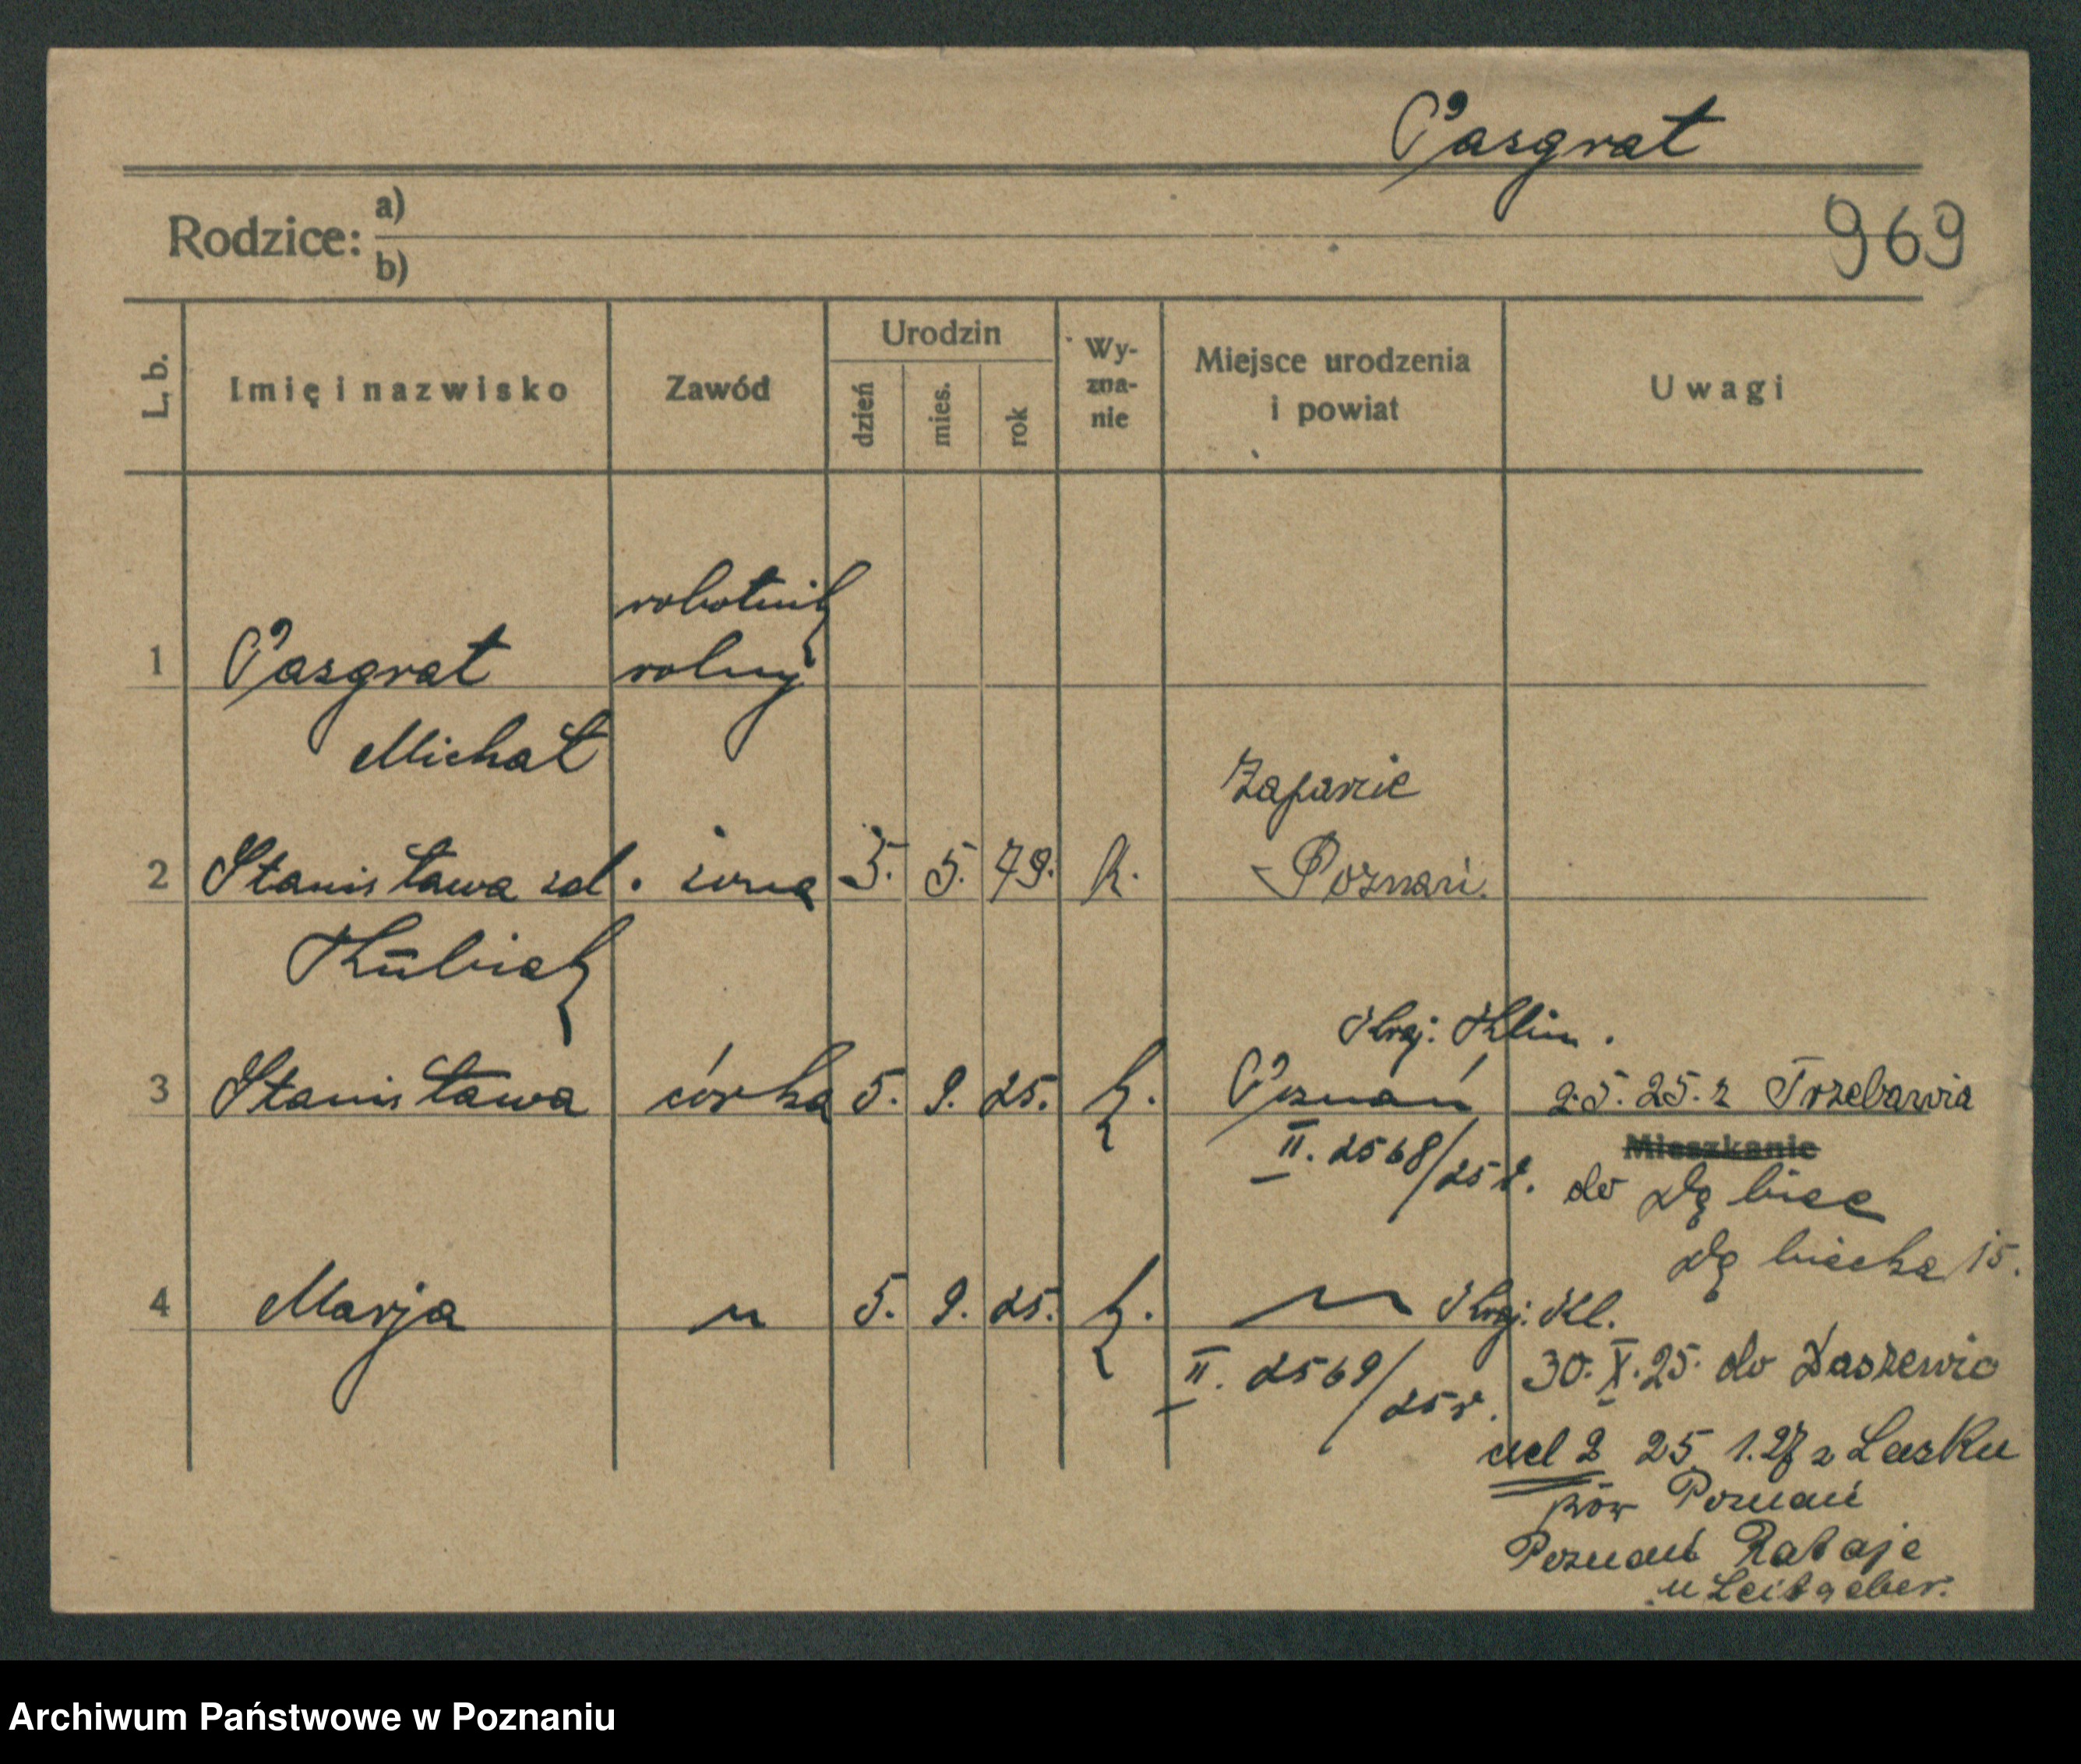 Pasgrat
Rodzice: a)
b)
969
L. b.
Imię i nazwisko
Zawód
Urodzin
dzień
mies.
rok
Wy-
zna-
nie
Miejsce urodzenia
i powiat
Uwagi
robotnik
1 Pasgrat rolny
Michał
2 Stanisława zd. żona 5. 5. 79. k. Poznań.
Kubiak
Kraj. Klin.
3 Stanisława córka 5. 9. 25. k. Poznań 2.5.25. z Trzebawia
Mieszkanie
II. 2568/25 r. do Dębiec
Dębiecka 15.
4 Marja " 5. 9. 25. k. " Kraj. Kl.
II. 2569/25 r. 30.X.25. do Daszewic
25 1.27 z Lasku
pow Poznań
Poznań Rataje
u Leitgeber.
Archiwum Państwowe w Poznaniu